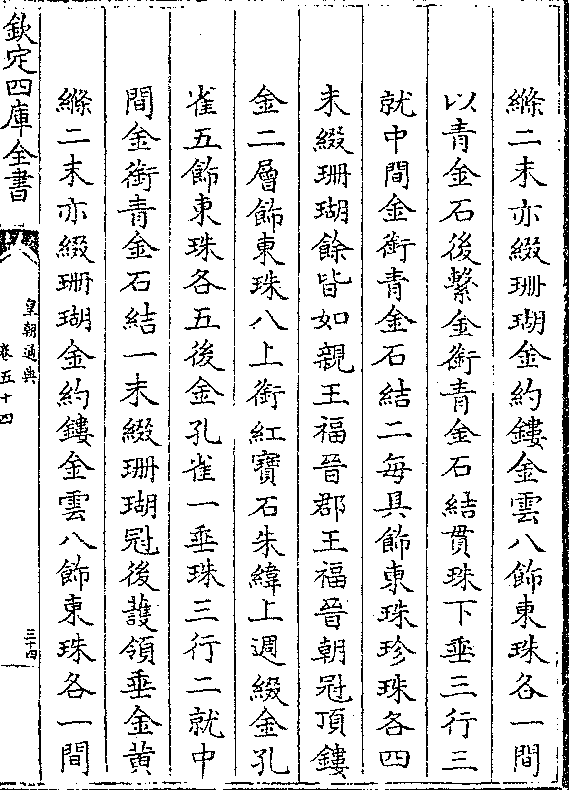 縧二末亦綴珊瑚金約鏤金雲八飾東珠各一間
以青金石後繫金銜青金石結貫珠下垂三行三
就中間金銜青金石結二每具飾東珠珍珠各四
末綴珊瑚餘皆如親王福晉郡王福晉朝冠頂鏤
金二層飾東珠八上銜紅寶石朱緯上週綴金孔
雀五飾東珠各五後金孔雀一垂珠三行二就中
間金銜青金石結一末綴珊瑚冠後護領垂金黄
縧二末亦綴珊瑚金約鏤金雲八飾東珠各一間
欽定四庫全書
皇朝通典
卷五十四
三十四